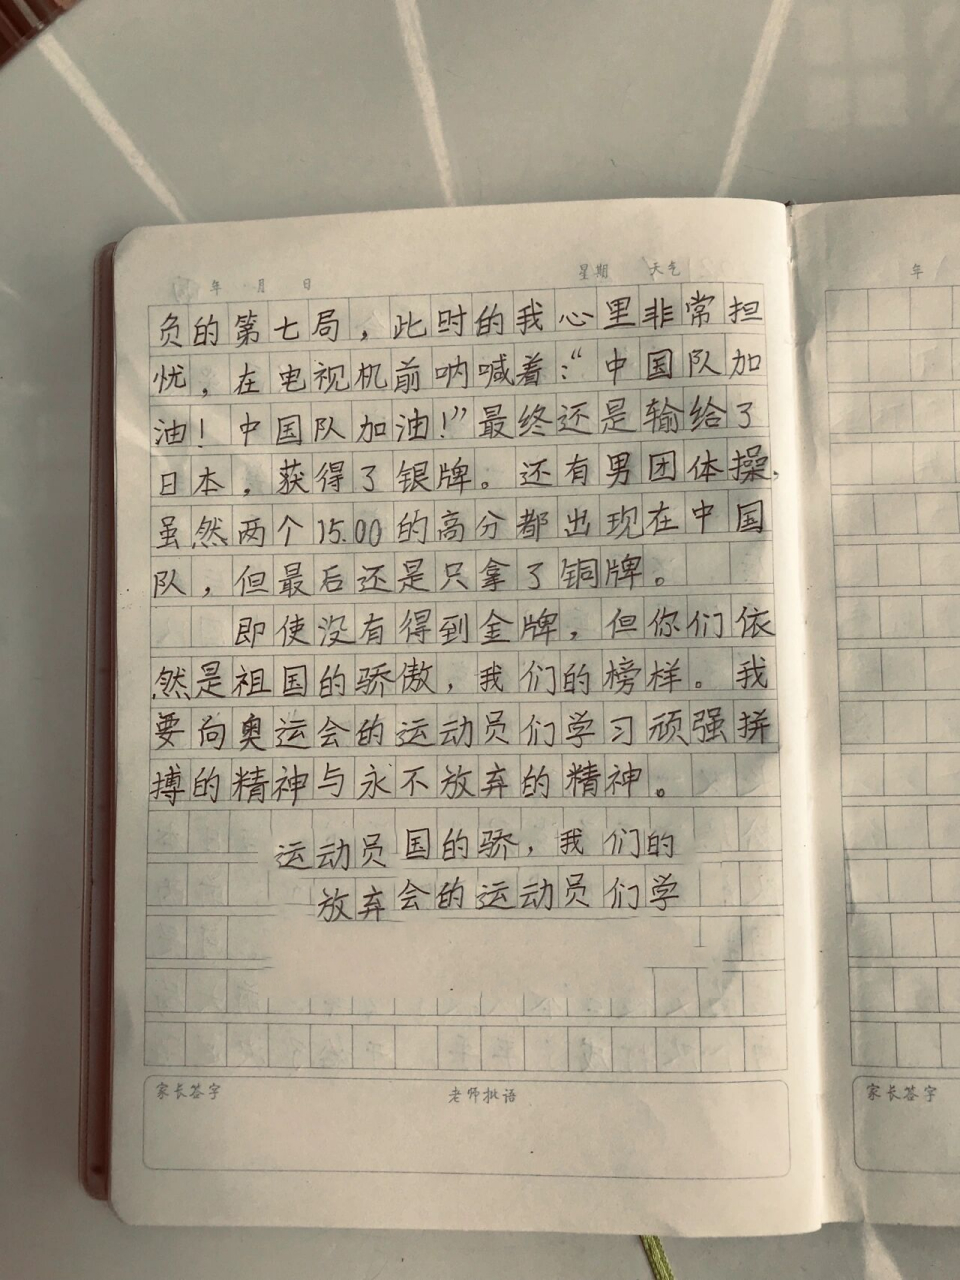 年 月 日 星期 天气
年
负的第七局，此时的我心里非常担
忧，在电视机前呐喊着：“中国队加
油！中国队加油！”最终还是输给了
日本，获得了银牌。还有男团体操，
虽然两个15.00的高分都出现在中国
队，但最后还是只拿了铜牌。
即使没有得到金牌，但你们依
然是祖国的骄傲，我们的榜样。我
要向奥运会的运动员们学习顽强拼
搏的精神与永不放弃的精神。
运动员国的骄，我们的
放弃会的运动员们学
家长签字 老师批语
家长签字